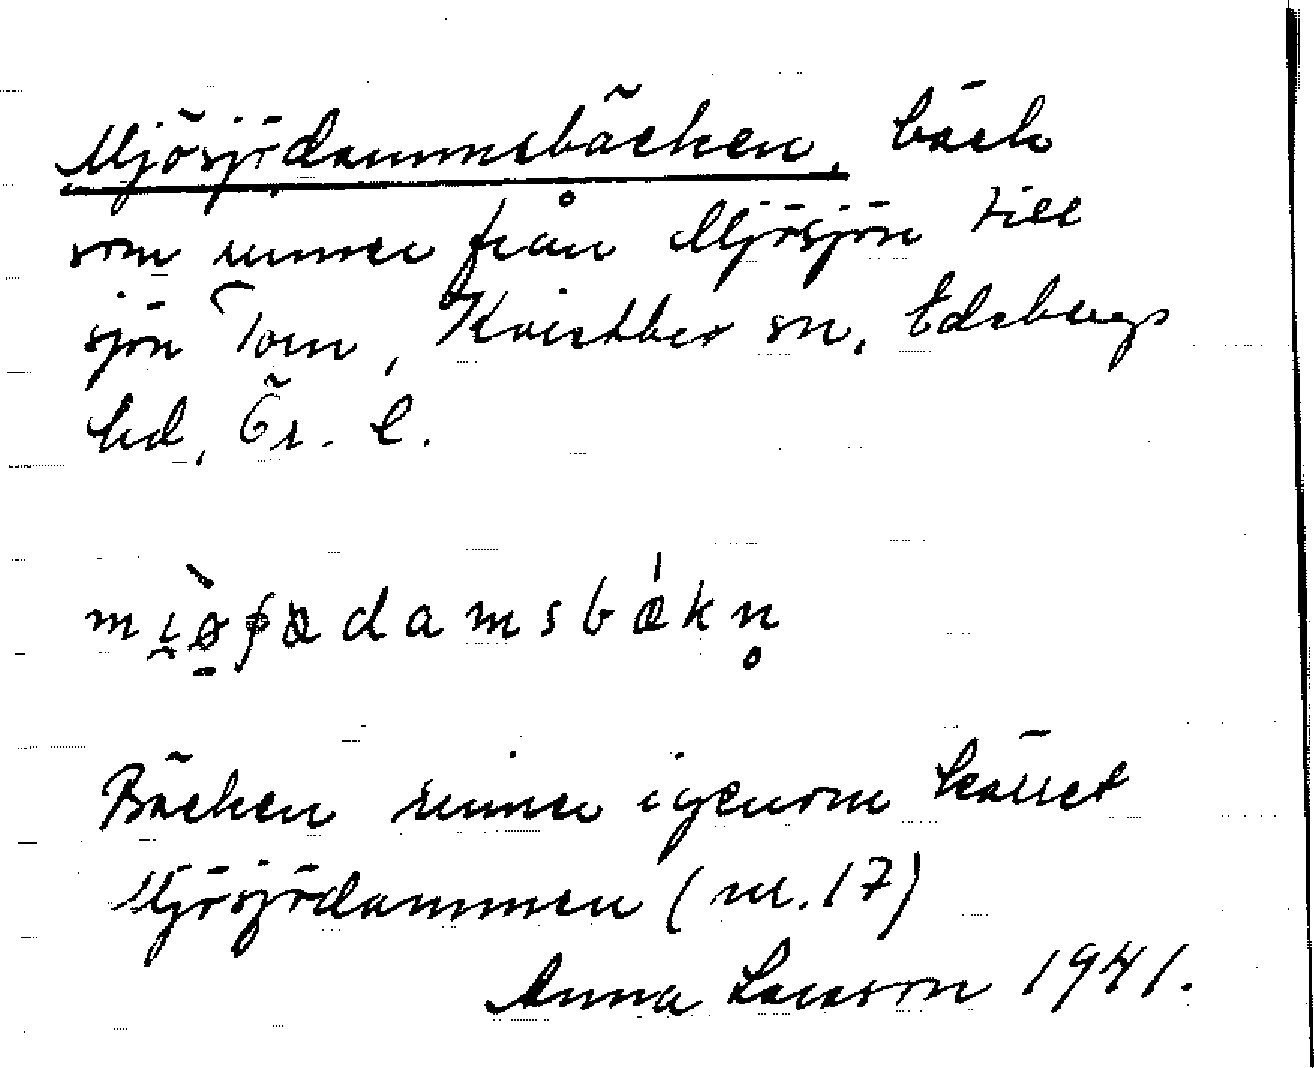 Mjösjödammsbäcken, bäck
som rinner från Mjösjön till
sjön Toen, Kvistbro sn, Edsbergs
hd, Ör. l.
bäkn̥
Bäcken rinner igenom kärret
Mjösjödammen (nr. 17)
Anna Larsson 1941.